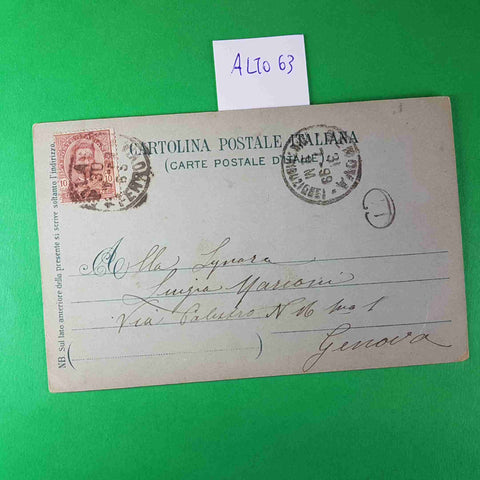 ALTO 63
CARTOLINA POSTALE ITALIANA
(CARTE POSTALE D'ITALIE)
NB. Sul lato anteriore della presente si scrive soltanto l'indirizzo.
10 10
GENOVA
99
Alla Signora
Luigia Marconi
Via N 16 int 1
Genova